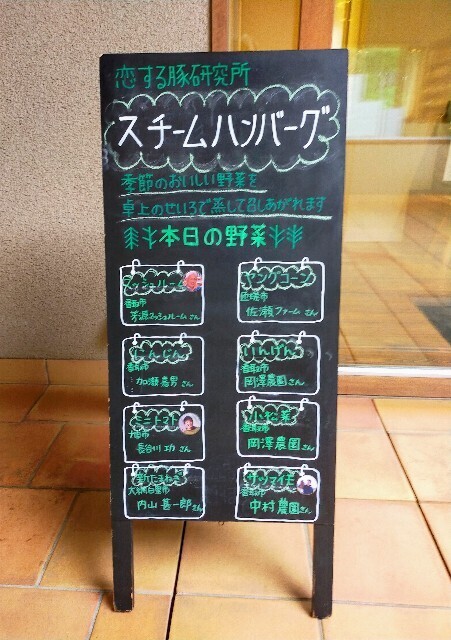 恋する豚研究所
スチームハンバーグ
季節のおいしい野菜を
卓上のせいろで蒸して召しあがれます
本日の野菜
マッシュルーム
香取市
芳源マッシュルームさん
ヤングコーン
匝瑳市
佐瀬ファームさん
にんじん
香取市
加瀬嘉男さん
いんげん
香取市
岡澤農園さん
ミニトマト
長谷川功さん
小松菜
香取市
岡澤農園さん
新たまねぎ
大網白里市
内山甚一郎さん
サツマイモ
香取市
中村農園さん